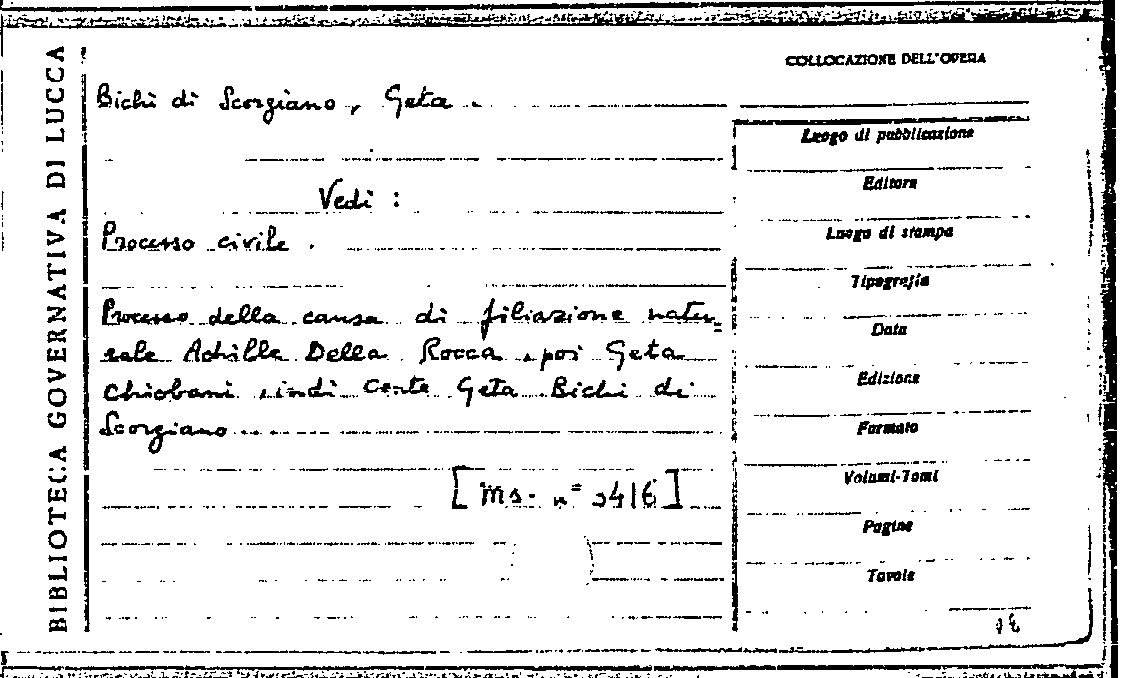 BIBLIOTECA GOVERNATIVA DI LUCCA
COLLOCAZIONE DELL'OPERA
Bichi di Scorgiano, Geta.
Vedi:
Processo civile.
Processo della causa di filiazione natu=
rale Achille Della Rocca, poi Geta
Chiobani, indi Conte Geta Bichi di
Scorgiano...
[Ms. n° 3416]
Luogo di pubblicazione
Editore
Luogo di stampa
Tipografia
Data
Edizione
Formato
Volumi-Tomi
Pagine
Tavole